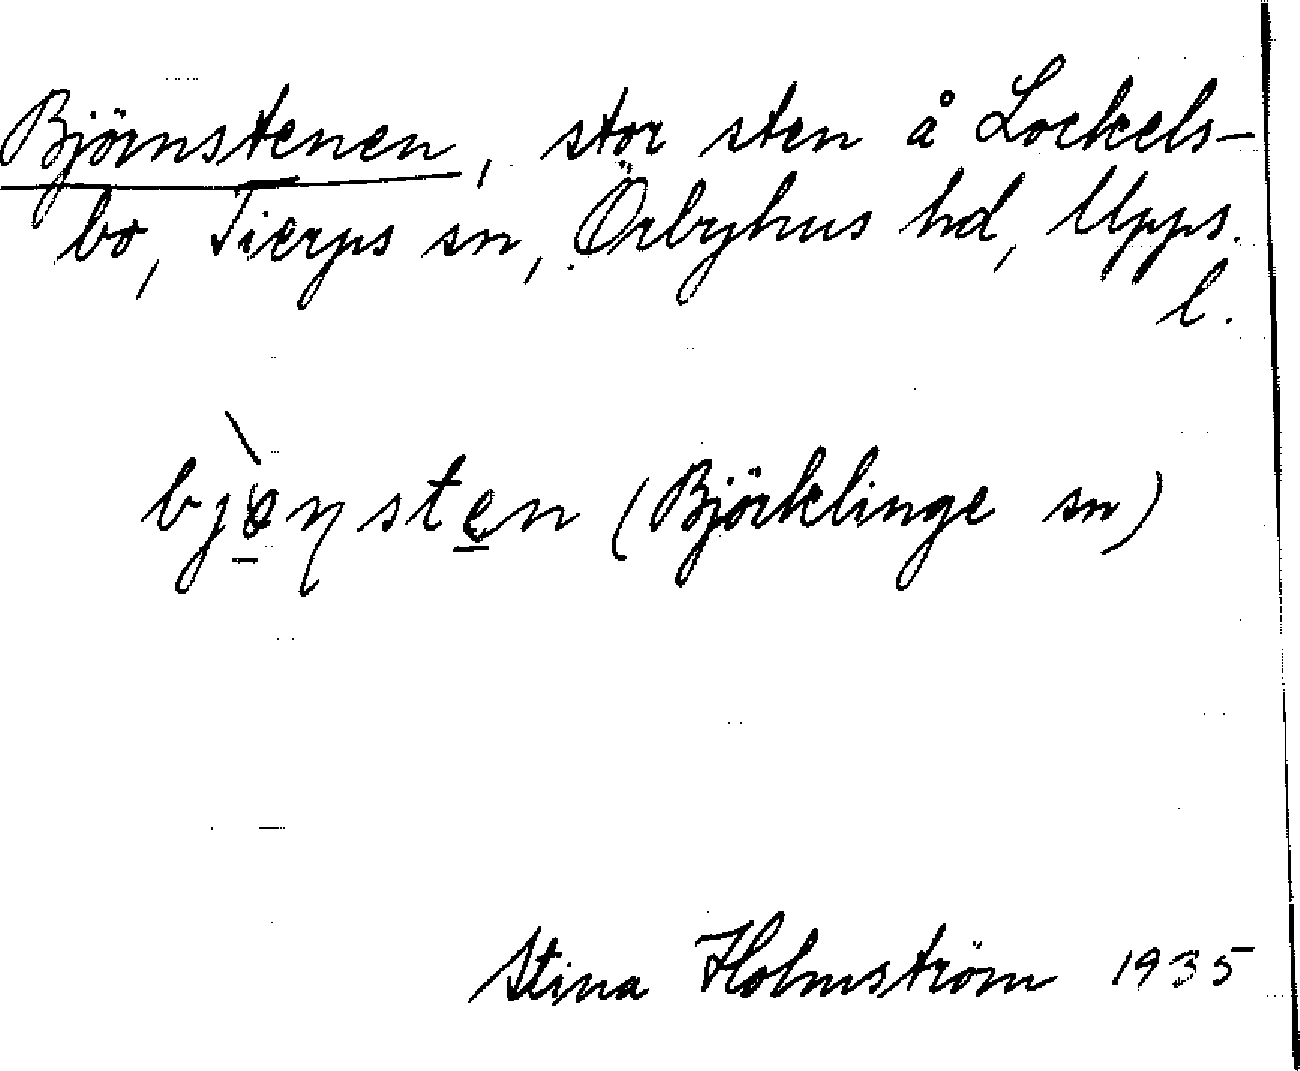 Björnstenen, stor sten å Lockels-
bo, Tierps sn, Örbyhus hd, Upps.
l.
(Björklinge sn)
Stina Holmström 1935